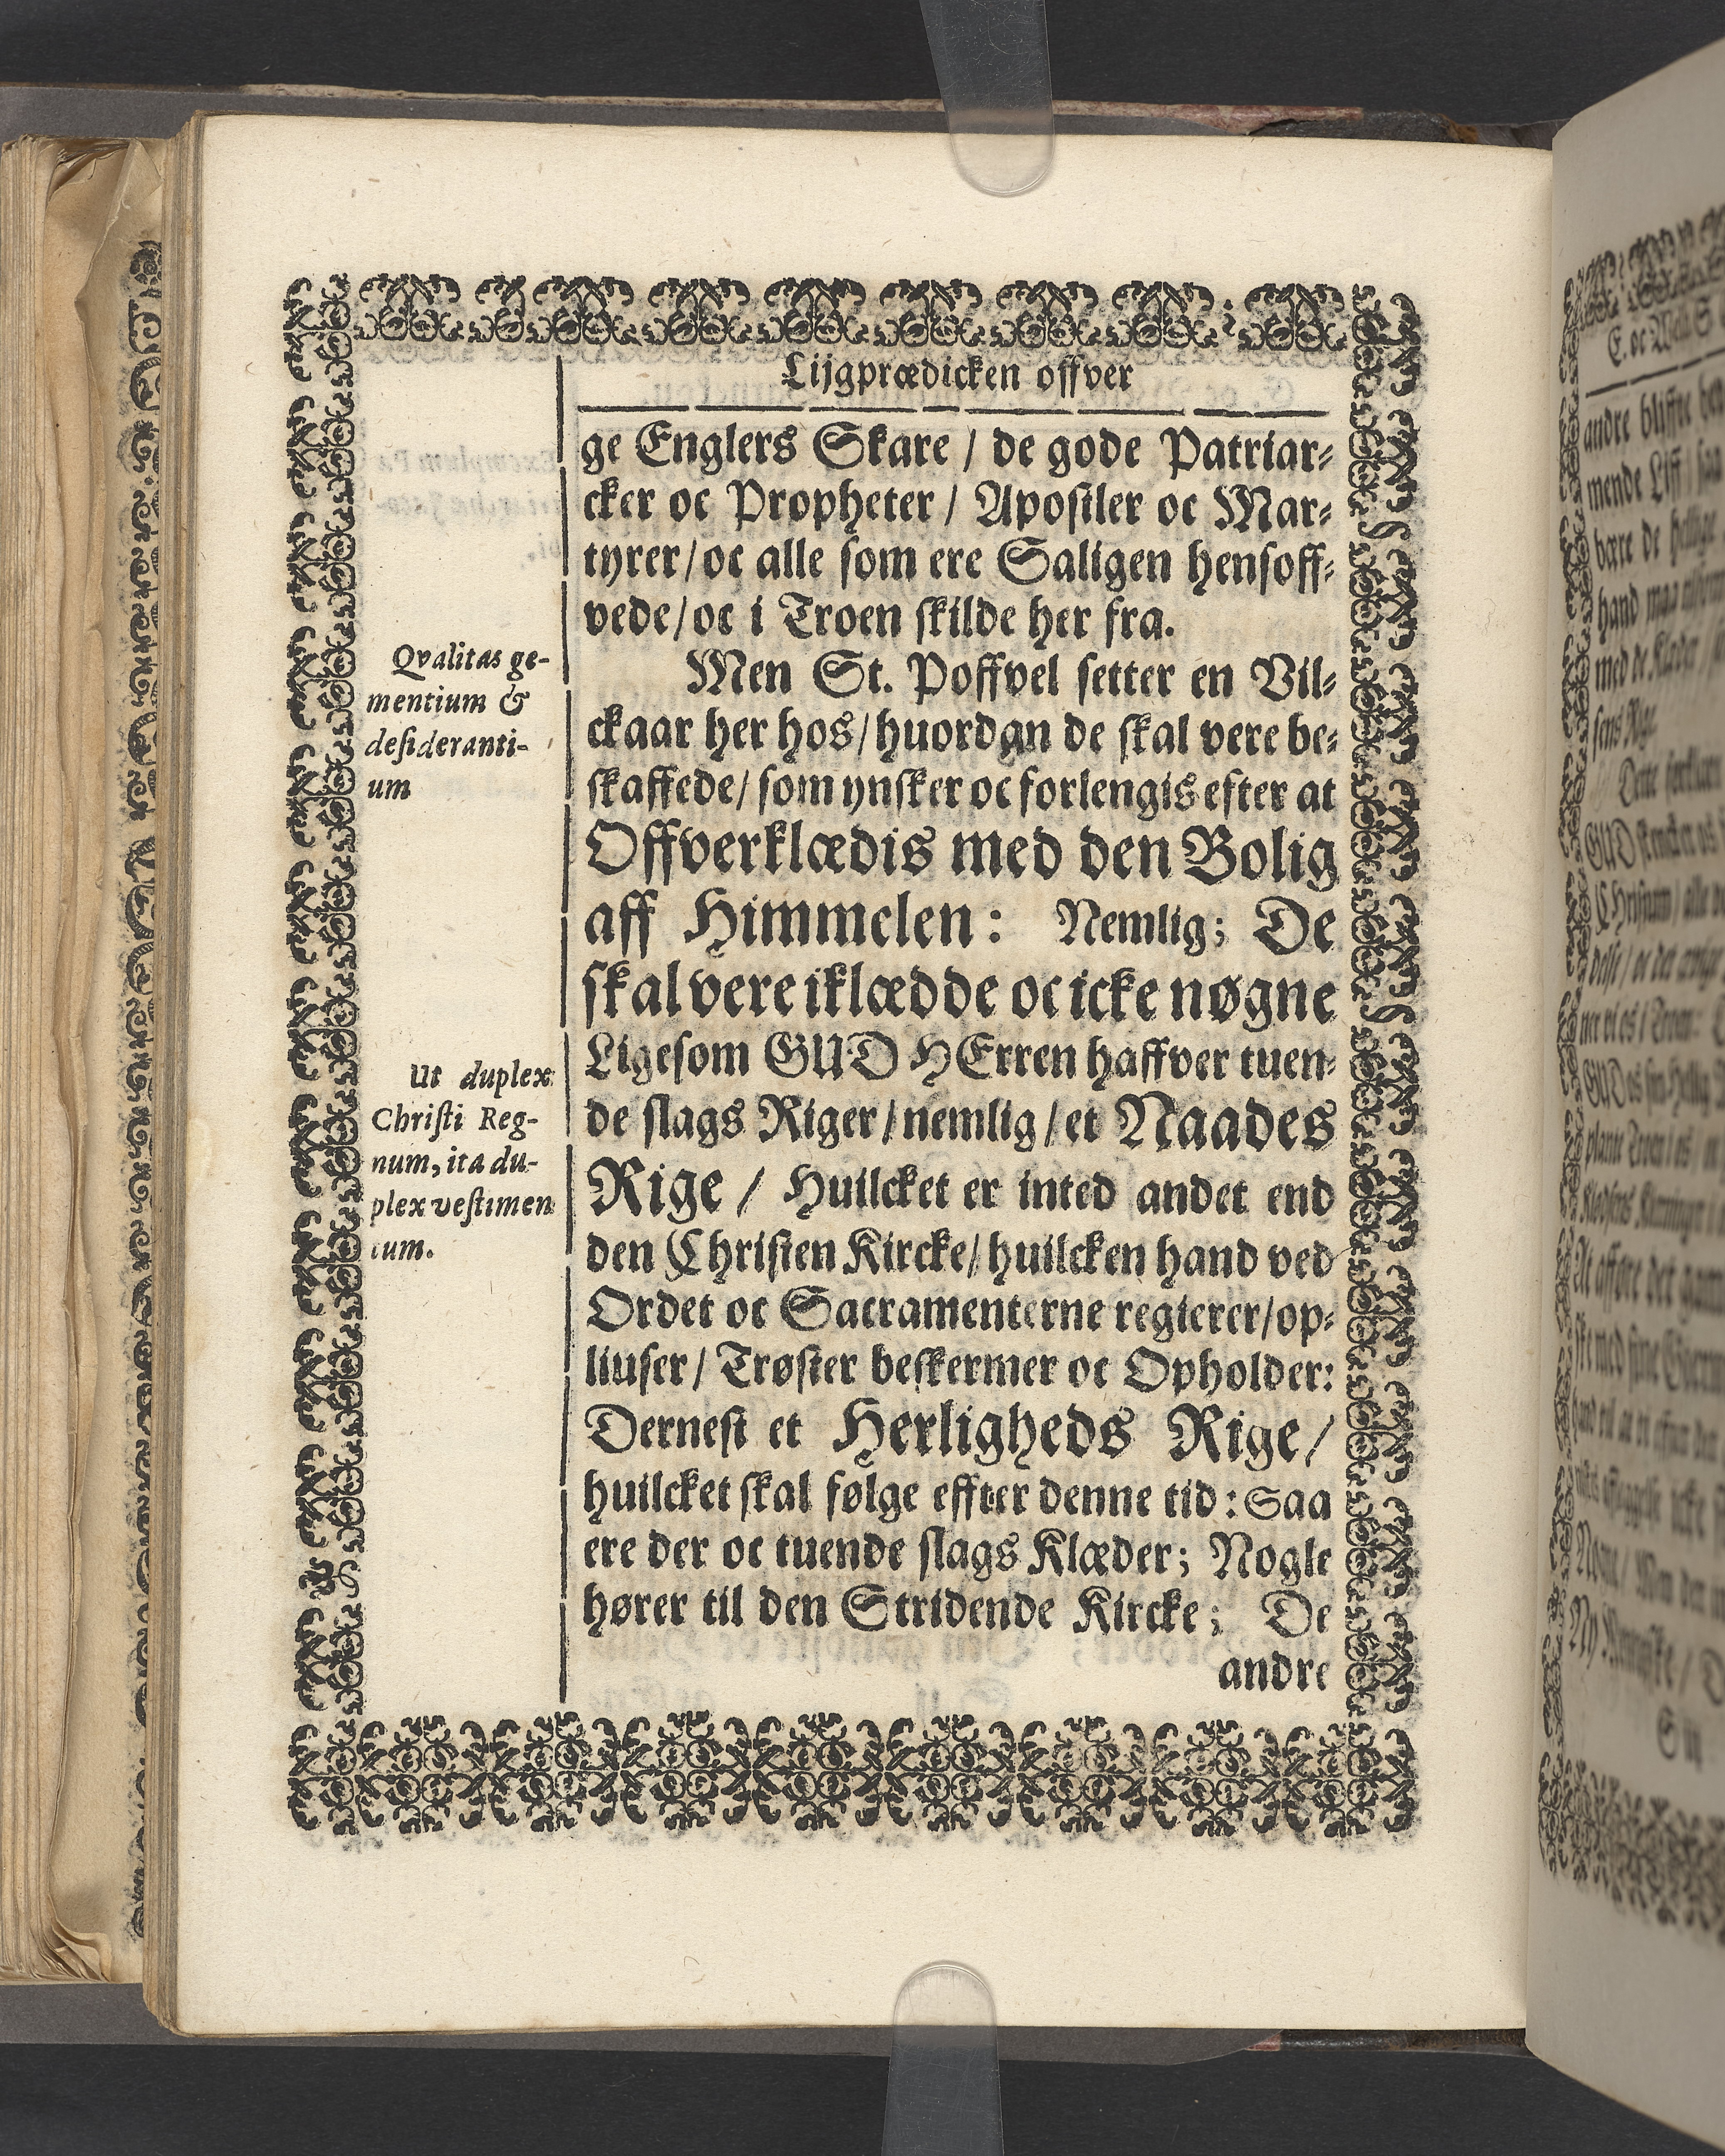 Lijgprædicken offver
ge Englers Skare / de gode Patriar-
cker oc Propheter / Apostler oc Mar-
tyrer/oc alle som ere Saligen hensoff-
vede/oc i Troen skilde her fra.
Qvalitas ge-
mentium &
desideranti-
um
Men St. Poffvel setter en Vil-
ckaar her hos/huordan de skal vere be-
skaffede/som ynsker oc forlengis efter at
Offverklædis med den Bolig
aff Himmelen: Nemlig; De
skal vere iklædde oc icke nøgne
Ut duplex
Christi Reg-
num, ita du-
plex vestimen
tum.
Ligesom GUD HErren haffver tuen-
de slags Riger/nemlig/et Naades
Rige / Huilcket er inted andet end
den Christen Kircke/huilcken hand ved
Ordet oc Sacramenterne regierer/op-
liuser/Trøster beskermer oc Opholder:
Dernest et Herligheds Rige/
huilcket skal følge effter denne tid: Saa
ere der oc tuende slags Klæder; Nogle
hører til den Stridende Kircke; De
andre